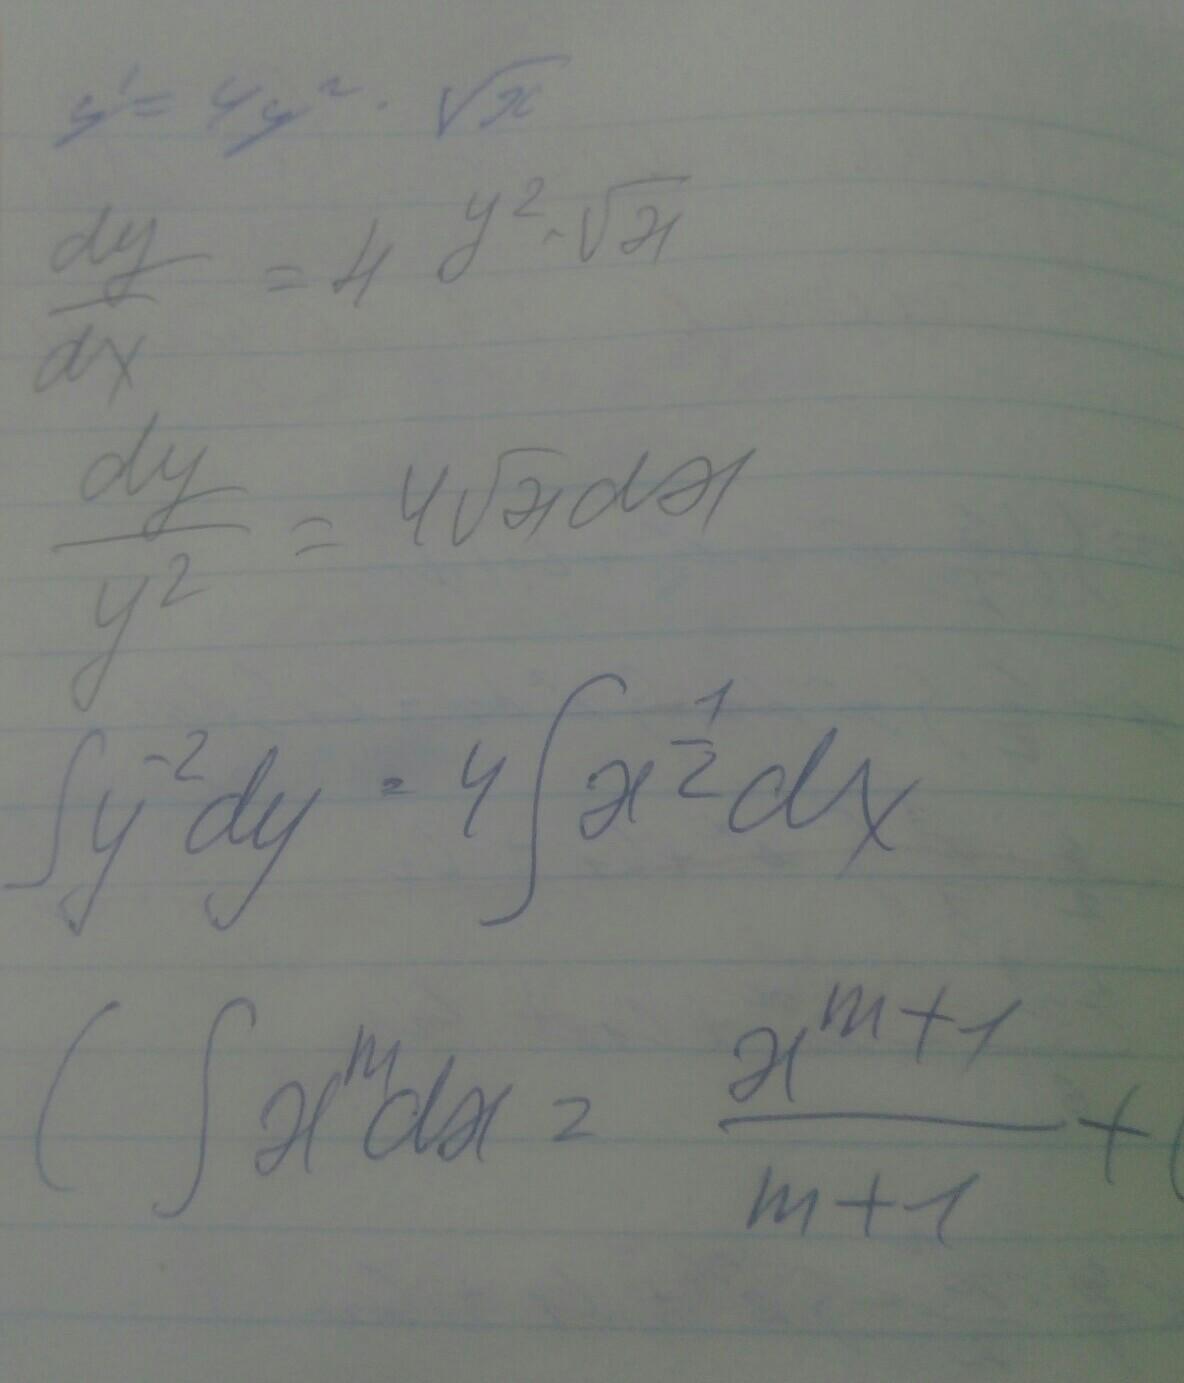 y' = 4y² · √x
dy/dx = 4 y² · √x
dy/y² = 4√x dx
∫y⁻²dy = 4∫x^(1/2) dx
(∫x^m dx = x^(m+1)/(m+1) + (